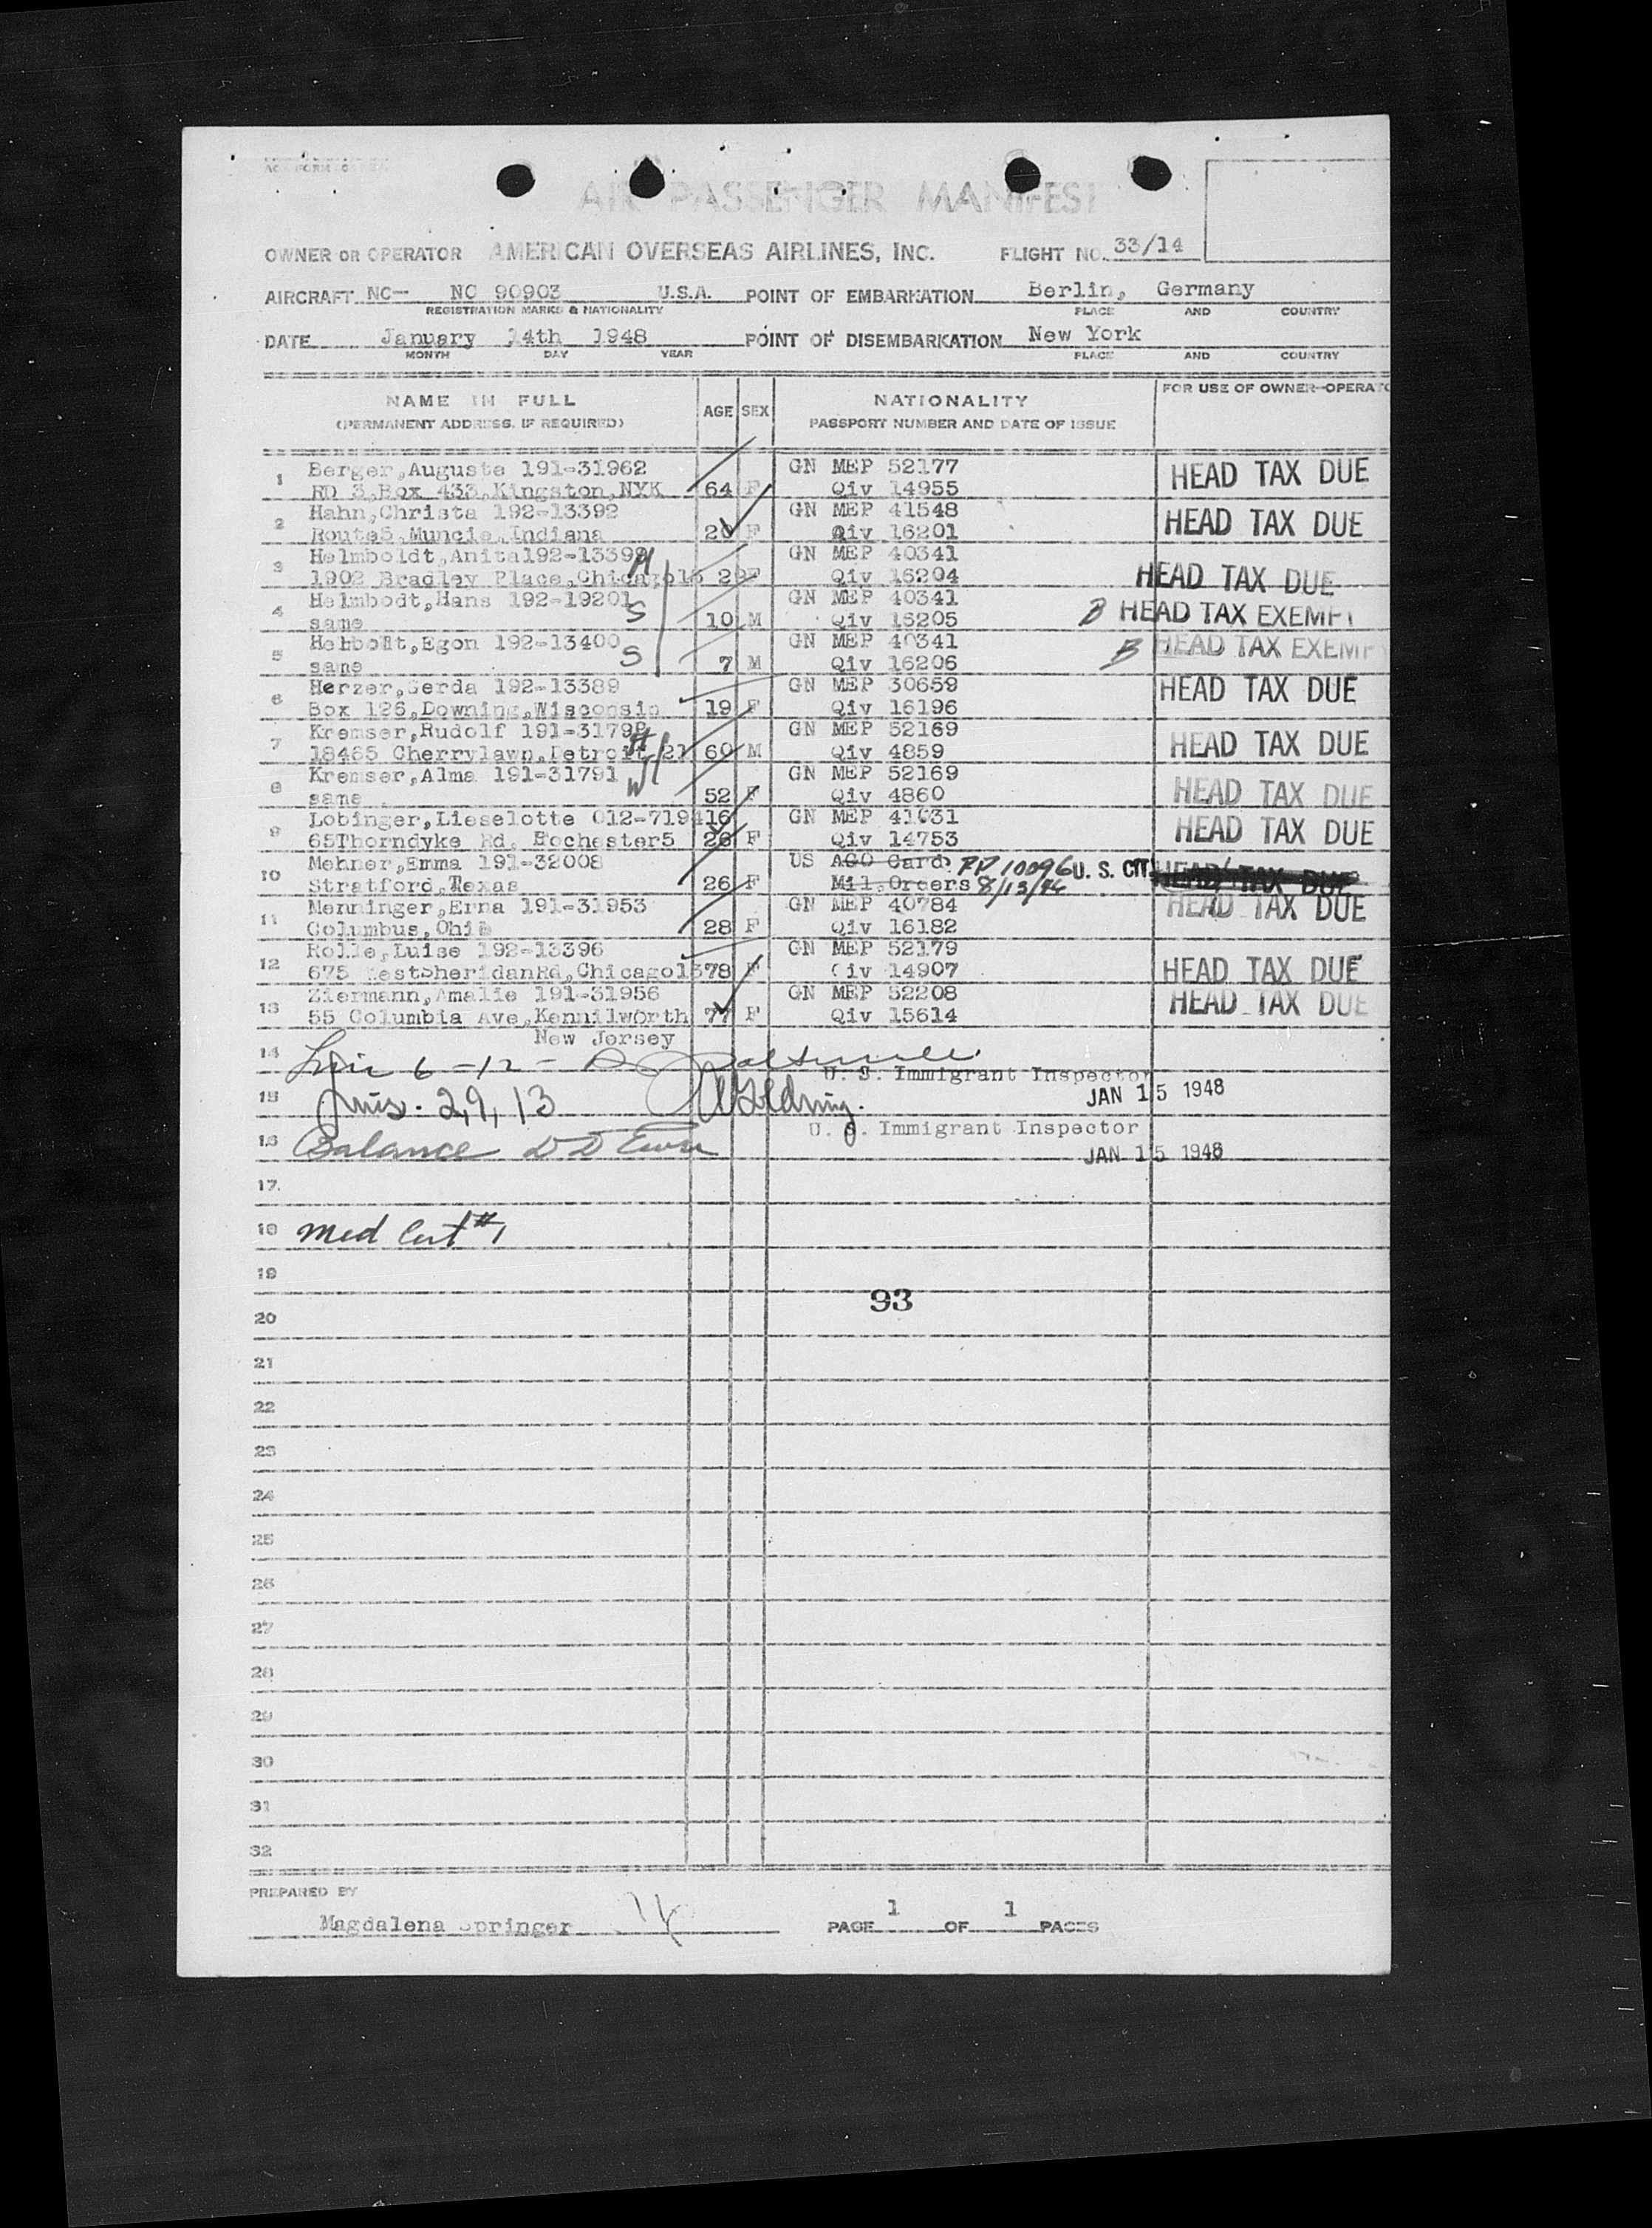 AIR PASSENGER MANIFEST
OWNER OR OPERATOR AMERICAN OVERSEAS AIRLINES, INC. FLIGHT NO. 33/14
AIRCRAFT NC— NC 90903 U.S.A. POINT OF EMBARKATION Berlin, Germany
REGISTRATION MARKS & NATIONALITY PLACE AND COUNTRY
DATE January 14th 1948 POINT OF DISEMBARKATION New York
MONTH DAY YEAR PLACE AND COUNTRY
FOR USE OF OWNER-OPERATO
NAME IN FULL AGE SEX NATIONALITY
(PERMANENT ADDRESS, IF REQUIRED) PASSPORT NUMBER AND DATE OF ISSUE
1 Berger,Auguste 191-31962 GN MEP 52177 HEAD TAX DUE
RD 3,Box 433,Kingston,NYK 64 F Qiv 14955
2 Hahn,Christa 192-13392 GN MEP 41548 HEAD TAX DUE
Route5,Muncie,Indiana 20 F Qiv 16201
3 Helmboldt,Anita192-13399 M GN MEP 40341
1902 Bradley Place,Chicago13 29F Qiv 16204 HEAD TAX DUE
4 Helmbodt,Hans 192-19201 S GN MEP 40341 B HEAD TAX EXEMPT
same 10 M Qiv 16205
5 Helboldt,Egon 192-13400 S GN MEP 40341 B HEAD TAX EXEMP
same 7 M Qiv 16206
6 Herzer,Gerda 192-13389 GN MEP 30659 HEAD TAX DUE
Box 126,Downing,Wisconsin 19 F Qiv 16196
7 Kremser,Rudolf 191-31792 H GN MEP 52169 HEAD TAX DUE
18465 Cherrylawn,Detroit 21 60 M Qiv 4859
8 Kremser,Alma 191-31791 W GN MEP 52169 HEAD TAX DUE
same 52 F Qiv 4860
9 Lobinger,Lieselotte 012-719416 GN MEP 41031 HEAD TAX DUE
65Thorndyke Rd, Rochester5 26 F Qiv 14753
10 Mehner,Emma 191-32008 US AGO Card PP 10096 U. S. CIT HEAD TAX DUE
Stratford,Texas 26 F Mil.Orders 8/13/46
11 Menninger,Erna 191-31953 GN MEP 40784 HEAD TAX DUE
Columbus,Ohio 28 F Qiv 16182
12 Rolle,Luise 192-13396 GN MEP 52179 HEAD TAX DUE
675 WestSheridanRd,Chicago13 78 F Qiv 14907
13 Ziermann,Amalie 191-31956 GN MEP 52208 HEAD TAX DUE
55 Columbia Ave,Kennilworth 77 F Qiv 15614
New Jersey
14 6-12-
U. S. Immigrant Inspector
15 2,9,13 JAN 15 1948
U. S. Immigrant Inspector
16 Balance JAN 15 1948
17.
18 Med Cert #1
19
93
20
21
22
23
24
25
26
27
28
29
30
31
32
PREPARED BY
Magdalena Springer PAGE 1 OF 1 PAGES